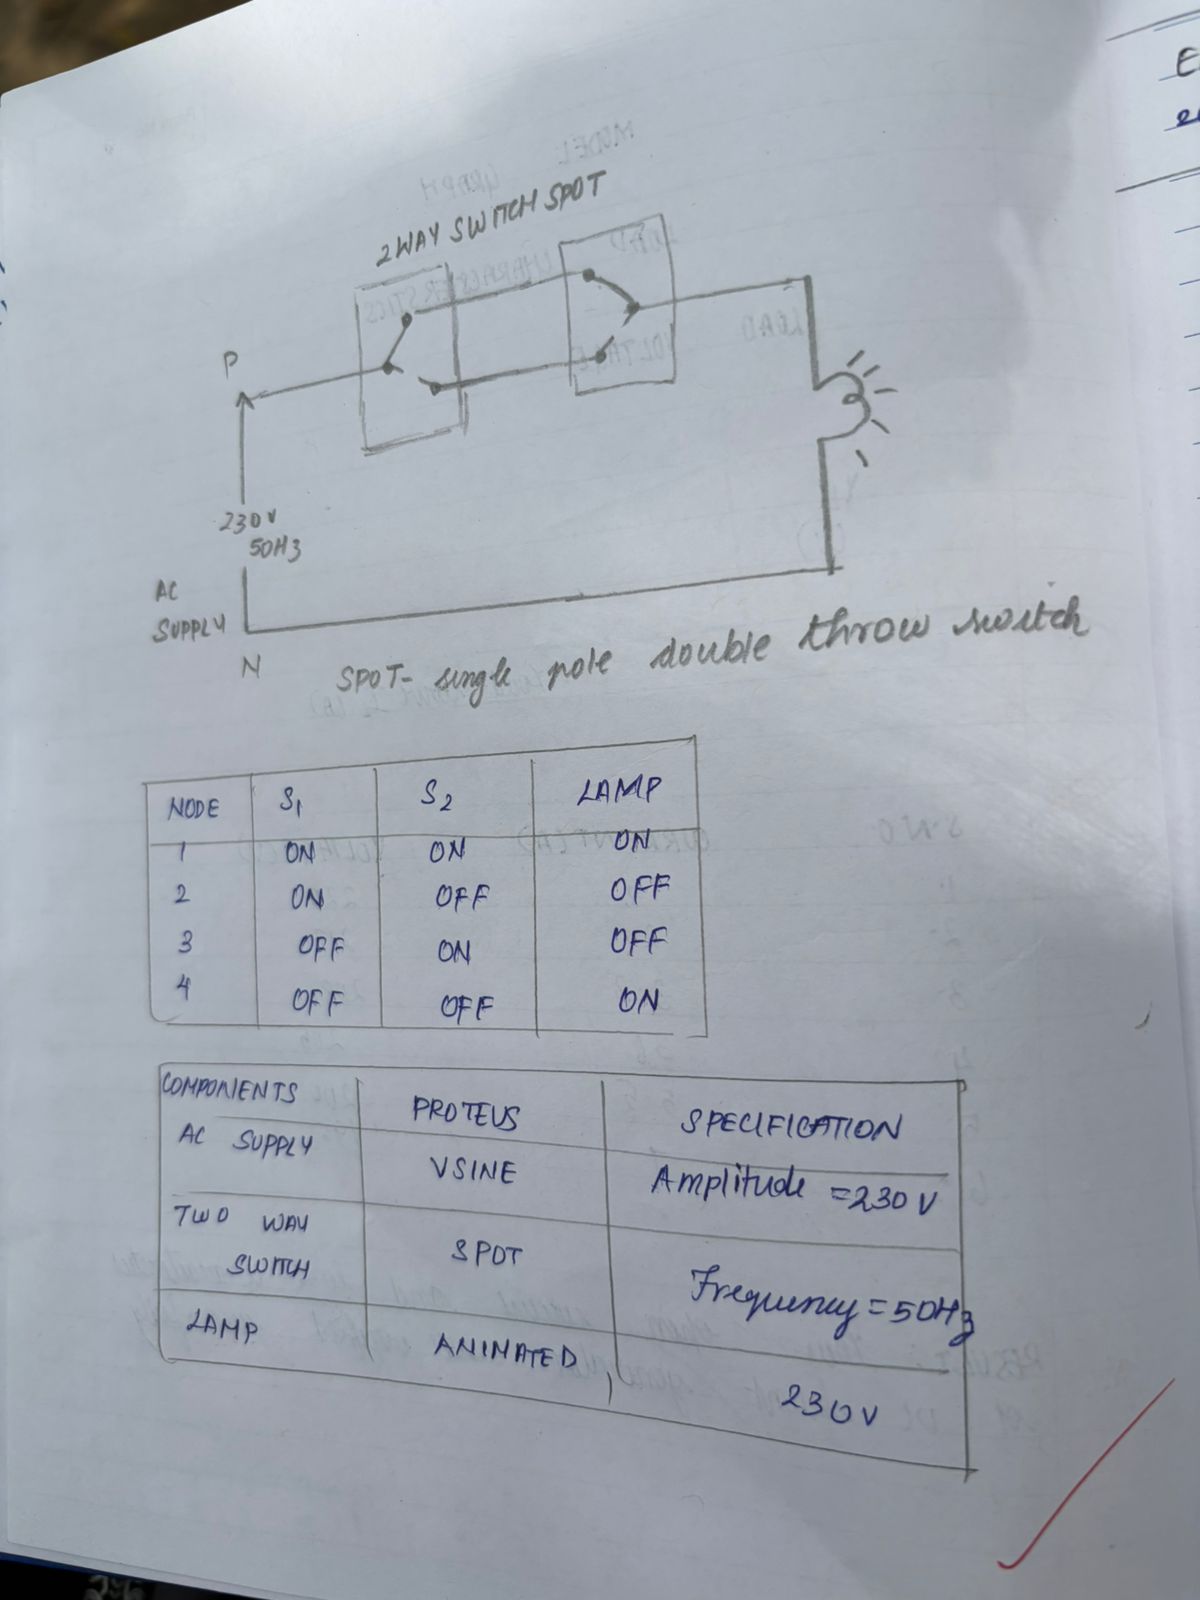 2WAY SWITCH SPOT
P
230V
50Hz
AC
SUPPLY
N
SPOT- single pole double throw switch
NODE S1 S2 LAMP
1 ON ON ON
2 ON OFF OFF
3 OFF ON OFF
4 OFF OFF ON
COMPONENTS PROTEUS SPECIFICATION
AC SUPPLY VSINE Amplitude =230V
TWO WAY
SWITCH SPOT Frequency=50Hz
LAMP ANIMATED 230V